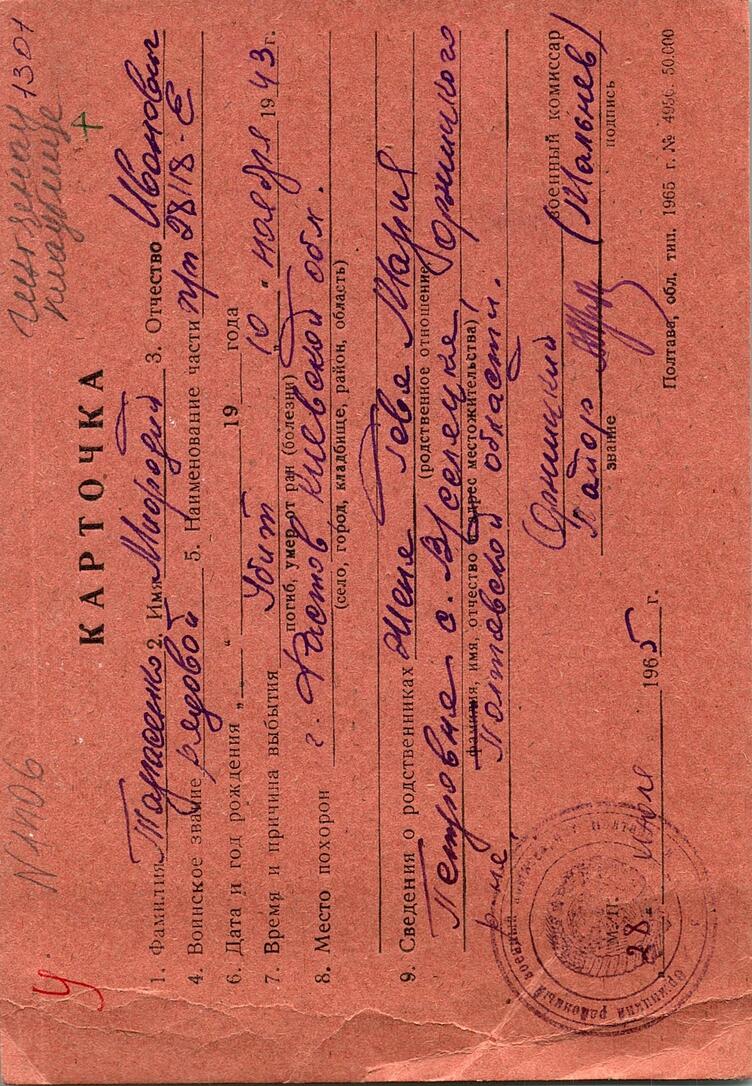 У
N 1106
1301
КАРТОЧКА
1. Фамилия Тарасенко 2. Имя Мифодий 3. Отчество Иванович
4. Воинское звание рядовой 5. Наименование части п/п 28118-Е
6. Дата и год рождения „ “ 19 года
7. Время и причина выбытия Убит 10. ноября 1943 г.
погиб, умер от ран (болезни)
8. Место похорон г. Фастов Киевской обл.
(село, город, кладбище, район, область)
9. Сведения о родственниках Жена Гевя Мария
(родственное отношение,
Петровна с. В/селецке, Оржицкого
фамилия, имя, отчество и адрес местожительства)
р-на, Полтавской области.
Оржицкий военный комиссар
Майор (Мальцев)
звание подпись
М. П.
28 июля 1965 г.
Полтава, обл. тип. 1965 г. № 4956. 50.000